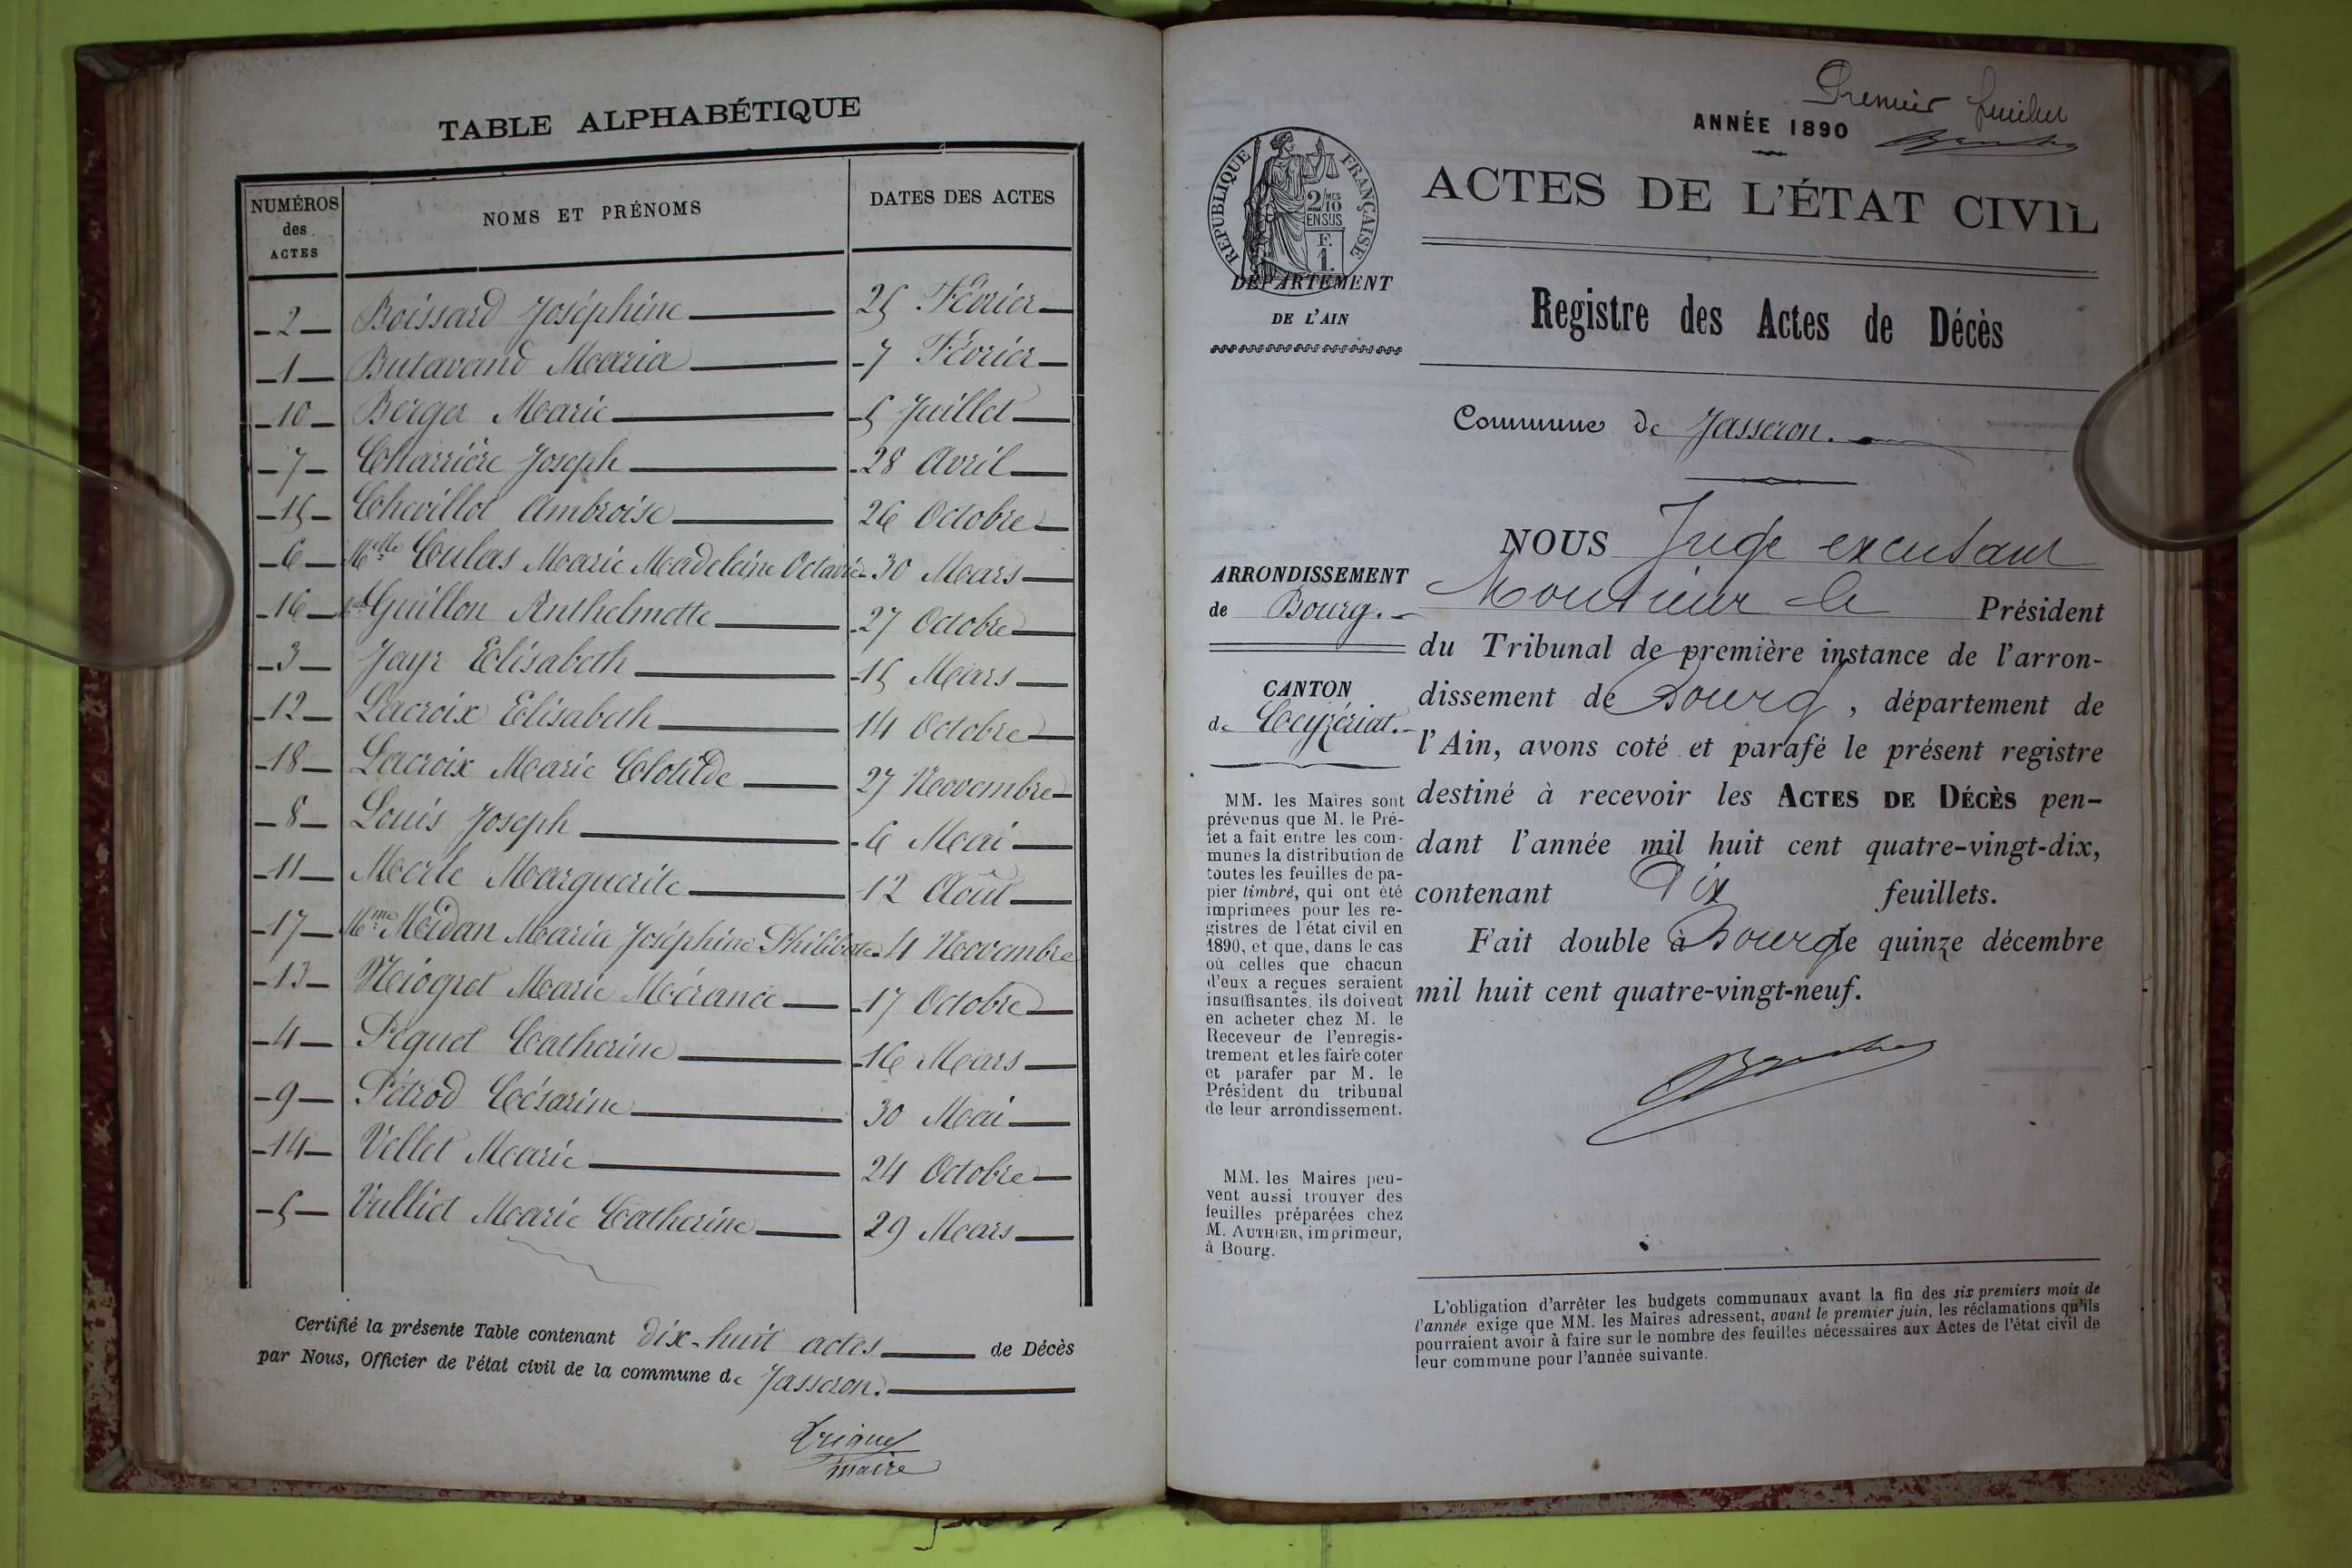 TABLE ALPHABÉTIQUE
NUMÉROS des ACTES NOMS ET PRÉNOMS DATES DES ACTES
2 Boissard Joséphine 25 Février
1 Butavand Maria 7 Février
10 Berger Marie 5 Juillet
7 Charrière Joseph 28 Avril
15 Chevillot Ambroise 26 Octobre
6 Mlle Culas Marie Madeleine Octavie 30 Mars
16 Guillon Anthelmette 27 Octobre
3 Jayr Elisabeth 15 Mars
12 Lacroix Elisabeth 14 Octobre
18 Lacroix Marie Clotilde 27 Novembre
8 Louis Joseph 6 Mai
11 Merle Marguerite 12 Août
17 Mme Midan Maria Joséphine 4 Novembre
13 Niogret Marie Mérance 17 Octobre
4 Péquet Catherine 16 Mars
9 Pétrod Césarine 30 Mai
14 Vellet Marie 24 Octobre
5 Vulliet Marie Catherine 29 Mars
Certifié la présente Table contenant dix-huit actes de Décès
par Nous, Officier de l'état civil de la commune de Jasseron.
maire
Premier feuillet
ANNÉE 1890
RÉPUBLIQUE FRANÇAISE
2/10 MES
EN SUS
F.
1.
ACTES DE L'ÉTAT CIVIL
DÉPARTEMENT
DE L'AIN
Registre des Actes de Décès
Commune de Jasseron.
ARRONDISSEMENT
de Bourg.
CANTON
de Ceyzériat.
MM. les Maires sont
prévenus que M. le Pré-
fet a fait entre les com-
munes la distribution de
toutes les feuilles de pa-
pier timbré, qui ont été
imprimées pour les re-
gistres de l'état civil en
1890, et que, dans le cas
où celles que chacun
d'eux a reçues seraient
insuffisantes, ils doivent
en acheter chez M. le
Receveur de l'enregis-
trement et les faire coter
et parafer par M. le
Président du tribunal
de leur arrondissement.
MM. les Maires peu-
vent aussi trouver des
feuilles préparées chez
M. AUTHIER, imprimeur,
à Bourg.
NOUS Juge excusant
Monsieur le Président
du Tribunal de première instance de l'arron-
dissement de Bourg, département de
l'Ain, avons coté et parafé le présent registre
destiné à recevoir les ACTES DE DÉCÈS pen-
dant l'année mil huit cent quatre-vingt-dix,
contenant Dix feuillets.
Fait double à Bourg le quinze décembre
mil huit cent quatre-vingt-neuf.
L'obligation d'arrêter les budgets communaux avant la fin des six premiers mois de
l'année exige que MM. les Maires adressent, avant le premier juin, les réclamations qu'ils
pourraient avoir à faire sur le nombre des feuilles nécessaires aux Actes de l'état civil de
leur commune pour l'année suivante.